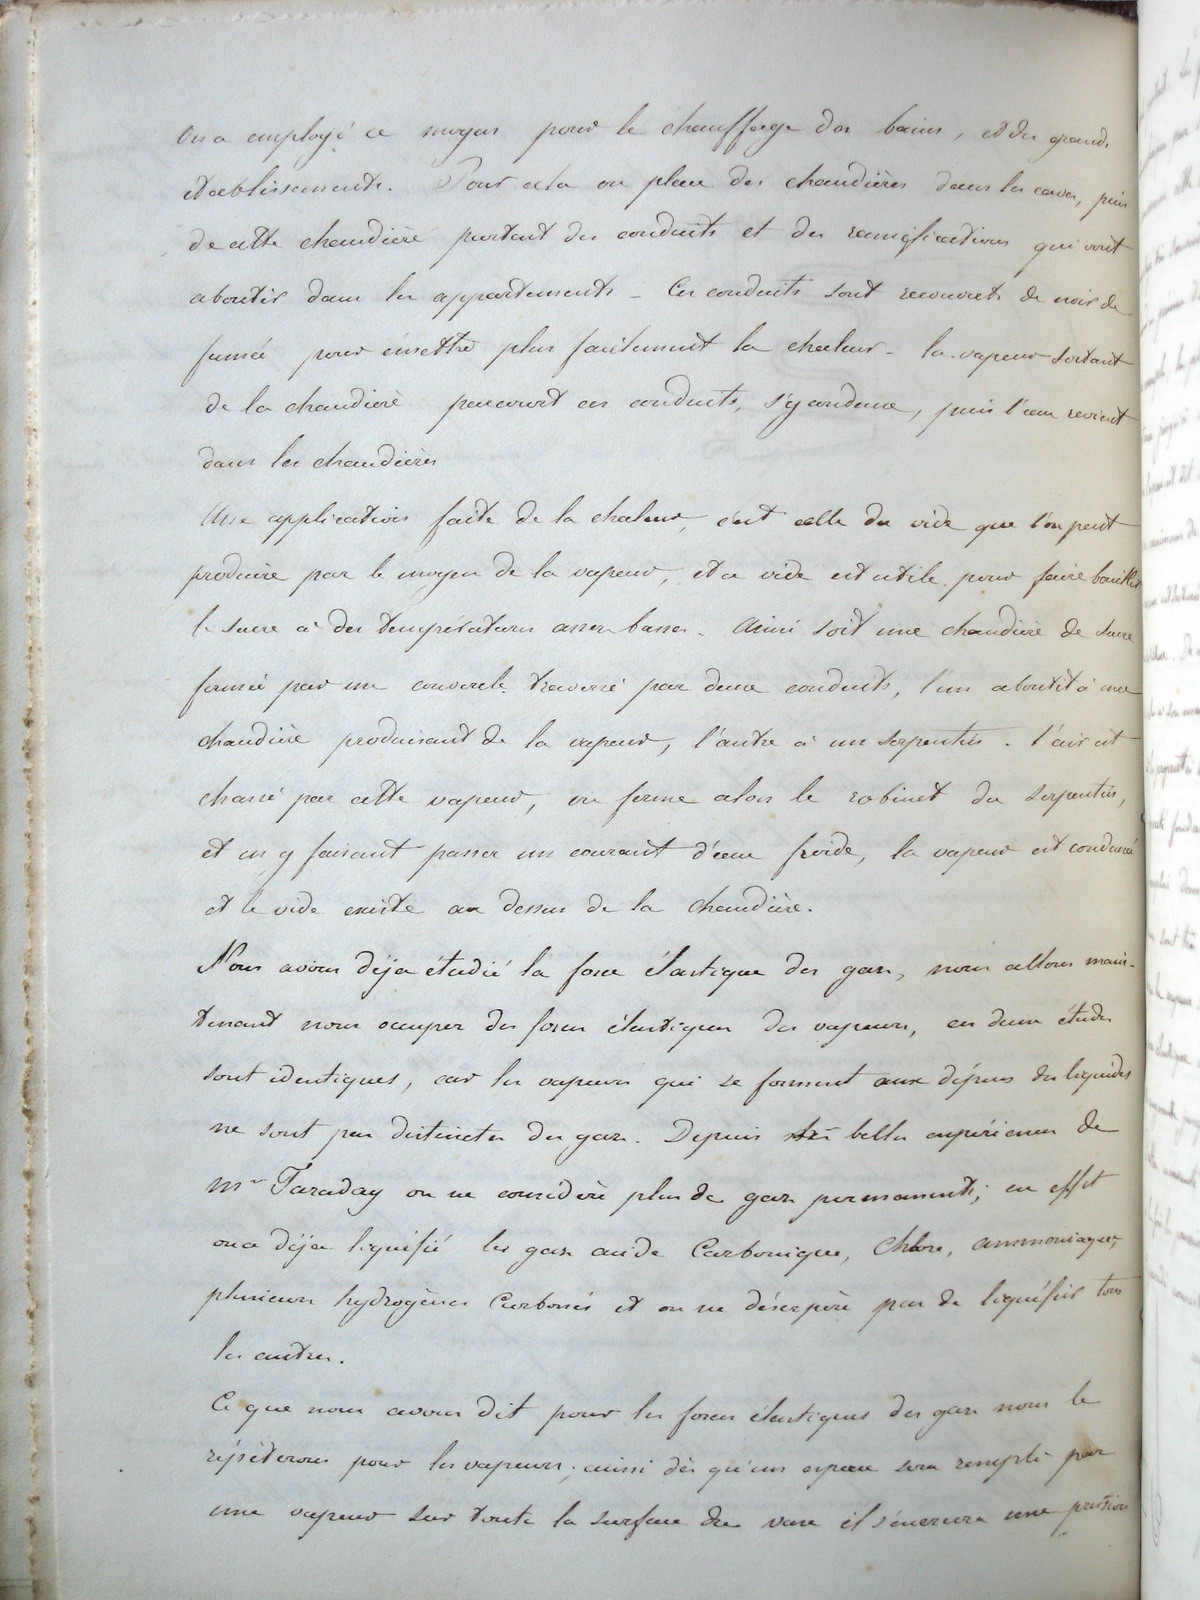 On a employé ce moyen pour le chauffage des bains, et des grands
établissements. Pour cela on place des chaudières dans les caves, puis
de cette chaudière partent des conduits et des ramifications qui vont
aboutir dans les appartements - Ces conduits sont recouverts de noir de
fumée pour émettre plus facilement la chaleur - la vapeur sortant
de la chaudière parcourt ces conduits, s'y condense, puis l'eau revient
dans les chaudières
Une application faite de la chaleur, c'est celle du vide que l'on peut
produire par le moyen de la vapeur, et ce vide est utile pour faire bouillir
le sucre à des températures assez basses. Ainsi soit une chaudière de sucre
fermée par un couvercle traversé par deux conduits, l'un aboutit à une
chaudière produisant de la vapeur, l'autre à un serpentin. l'air est
chassé par cette vapeur, on ferme alors le robinet du serpentin,
et en y faisant passer un courant d'eau froide, la vapeur est condensée
et le vide existe au dessus de la chaudière.
Nous avons déja étudié la force élastique des gaz, nous allons main-
tenant nous occuper des forces élastiques des vapeurs, ces deux études
sont identiques, car les vapeurs qui se forment aux dépens des liquides
ne sont pas distinctes des gaz. Depuis les belles expériences de
Mr Faraday on ne considère plus de gaz permanents; en effet
on a déja liquéfié les gaz acide Carbonique, Chlore, ammoniaque,
plusieurs hydrogènes Carbonés et on ne désespère pas de liquéfier tous
les autres.
Ce que nous avons dit pour les forces élastiques des gaz nous le
répéterons pour les vapeurs; ainsi dès qu'un espace sera rempli par
une vapeur sur toute la surface du vase il s'exercera une pression